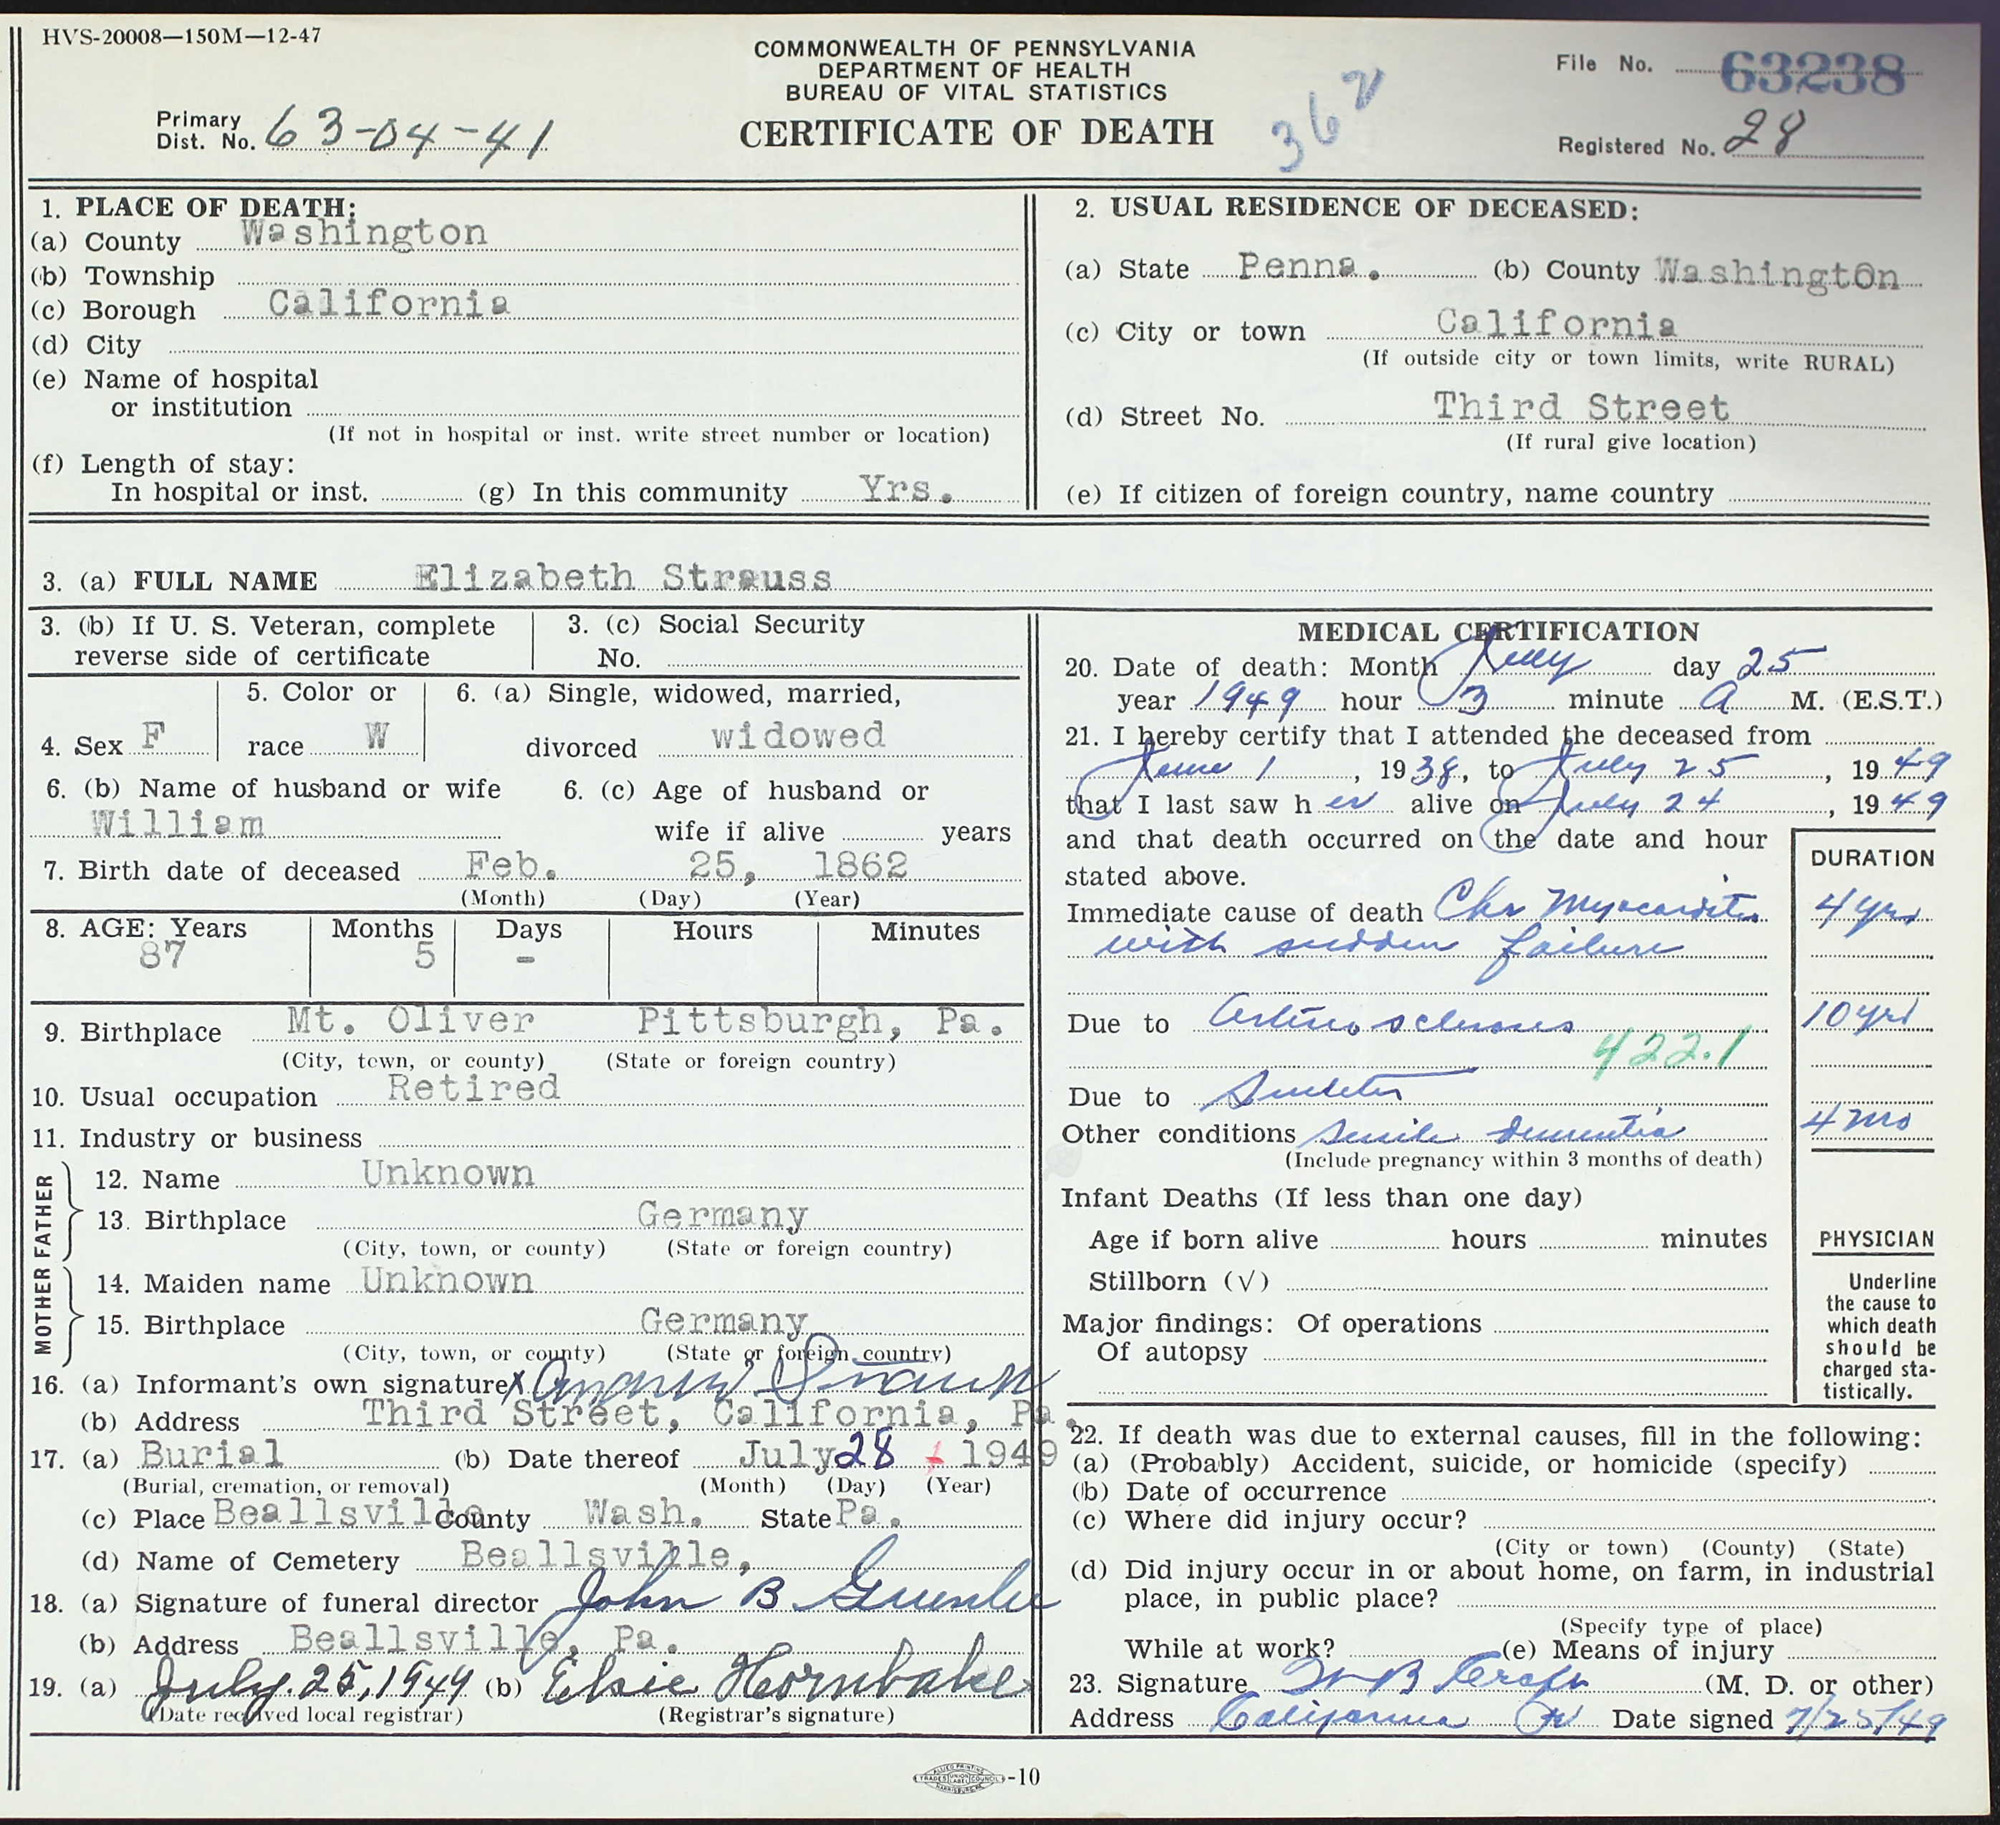 HVS-20008—150M—12-47
COMMONWEALTH OF PENNSYLVANIA
DEPARTMENT OF HEALTH
BUREAU OF VITAL STATISTICS
CERTIFICATE OF DEATH
362
File No. 63238
Primary
Dist. No. 63-04-41
Registered No. 28
1. PLACE OF DEATH:
(a) County Washington
(b) Township
(c) Borough California
(d) City
(e) Name of hospital
or institution
(If not in hospital or inst. write street number or location)
(f) Length of stay:
In hospital or inst. (g) In this community Yrs.
2. USUAL RESIDENCE OF DECEASED:
(a) State Penna. (b) County Washington
(c) City or town California
(If outside city or town limits, write RURAL)
(d) Street No. Third Street
(If rural give location)
(e) If citizen of foreign country, name country
3. (a) FULL NAME Elizabeth Strauss
3. (b) If U. S. Veteran, complete
reverse side of certificate
3. (c) Social Security
No.
4. Sex F
5. Color or
race W
6. (a) Single, widowed, married,
divorced widowed
6. (b) Name of husband or wife
William
6. (c) Age of husband or
wife if alive years
7. Birth date of deceased Feb. 25, 1862
(Month) (Day) (Year)
8. AGE: Years Months Days Hours Minutes
87 5 -
9. Birthplace Mt. Oliver Pittsburgh, Pa.
(City, town, or county) (State or foreign country)
10. Usual occupation Retired
11. Industry or business
FATHER
12. Name Unknown
13. Birthplace Germany
(City, town, or county) (State or foreign country)
MOTHER
14. Maiden name Unknown
15. Birthplace Germany
(City, town, or county) (State or foreign country)
16. (a) Informant's own signature X Andrew Strauss
(b) Address Third Street, California, Pa.
17. (a) Burial (b) Date thereof July 28 1949
(Burial, cremation, or removal) (Month) (Day) (Year)
(c) Place Beallsville County Wash. State Pa.
(d) Name of Cemetery Beallsville,
18. (a) Signature of funeral director John B Greenlee
(b) Address Beallsville, Pa.
19. (a) July. 25, 1949 (b) Elsie Hornbake
(Date received local registrar) (Registrar's signature)
MEDICAL CERTIFICATION
20. Date of death: Month July day 25
year 1949 hour 3 minute A M. (E.S.T.)
21. I hereby certify that I attended the deceased from
June 1, 1938, to July 25, 1949
that I last saw her alive on July 24, 1949
and that death occurred on the date and hour
stated above.
DURATION
Immediate cause of death Chr Myocarditis 4 yrs
with sudden failure
Due to Arterio sclerosis 10 yrs
422.1
Due to
Other conditions Senile dementia 4 mo
(Include pregnancy within 3 months of death)
Infant Deaths (If less than one day)
Age if born alive hours minutes
Stillborn (√)
Major findings: Of operations
Of autopsy
PHYSICIAN
Underline
the cause to
which death
should be
charged sta-
tistically.
22. If death was due to external causes, fill in the following:
(a) (Probably) Accident, suicide, or homicide (specify)
(b) Date of occurrence
(c) Where did injury occur?
(City or town) (County) (State)
(d) Did injury occur in or about home, on farm, in industrial
place, in public place?
(Specify type of place)
While at work? (e) Means of injury
23. Signature (M. D. or other)
Address California Pa Date signed 7/25/49
-10